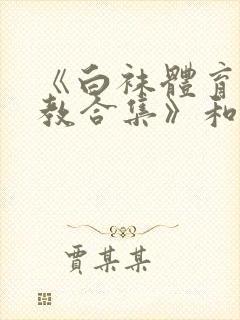 《白袜體育
教合集》和
賈某某